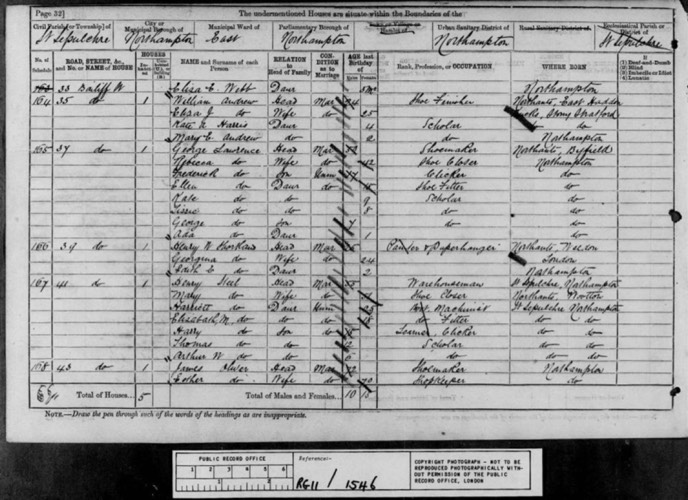 Page 32]
The undermentioned Houses are situate within the Boundaries of the
Civil Parish [or Township] of
St Sepulchre
City or
Municipal Borough of
Northampton
Municipal Ward of
East
Parliamentary Borough of
Northampton
Town or Village or
Hamlet of
Urban Sanitary District of
Northampton
Rural Sanitary District of
Ecclesiastical Parish or
District of
St Sepulchre
No. of Schedule
ROAD, STREET, &c., and No. or NAME of HOUSE
HOUSES
NAME and Surname of each Person
RELATION to Head of Family
CONDITION as to Marriage
AGE last Birthday of
Rank, Profession, or OCCUPATION
WHERE BORN
(1) Deaf-and-Dumb
(2) Blind
(3) Imbecile or Idiot
(4) Lunatic
163 33 Bailiff W Eliza E. Webb Daur 5m Northampton
164 35 do 1 William Andrew Head Mar 24 Shoe Finisher Northants, East Haddon
Eliza J. do Wife do 25 Stony Stratford
Kate A Harris Daur 4 Scholar do
Mary E. Andrew do 2 Northampton
165 37 do 1 George Lawrence Head Mar Shoemaker Northants, Byfield
Rebecca do Wife do 42 Shoe Closer Northampton
Frederick do Son Unm Clicker do
Ellen do Daur do Shoe Fitter do
Kate do do 9 Scholar do
Lissie do do 8 do do
George do Son do do
Ada do Daur 1 do
166 39 do 1 Henry W Head Mar Painter & Paperhanger Northants,
Georgina do Wife do 24 London
Edith E do Daur 2 Northampton
167 41 do 1 Henry Steel Head Mar Warehouseman St Sepulchre, Northampton
Mary do Wife do Shoe Closer Northants,
Harriett do Daur Unm Machinist St Sepulchre Northampton
Elisabeth M. do do do do Fitter do do
Harry do Son do Clicker do do
Thomas do do Scholar do do
Arthur W do do do do do
168 43 do 1 James Oliver Head Mar Shoemaker Northampton
Esther do Wife do Shopkeeper do
Total of Houses... 5 Total of Males and Females... 10 15
NOTE.—Draw the pen through such of the words of the headings as are inappropriate.
PUBLIC RECORD OFFICE
1 2
Reference:-
RG 11 / 1546
COPYRIGHT PHOTOGRAPH - NOT TO BE
REPRODUCED PHOTOGRAPHICALLY WITH-
OUT PERMISSION OF THE PUBLIC
RECORD OFFICE, LONDON